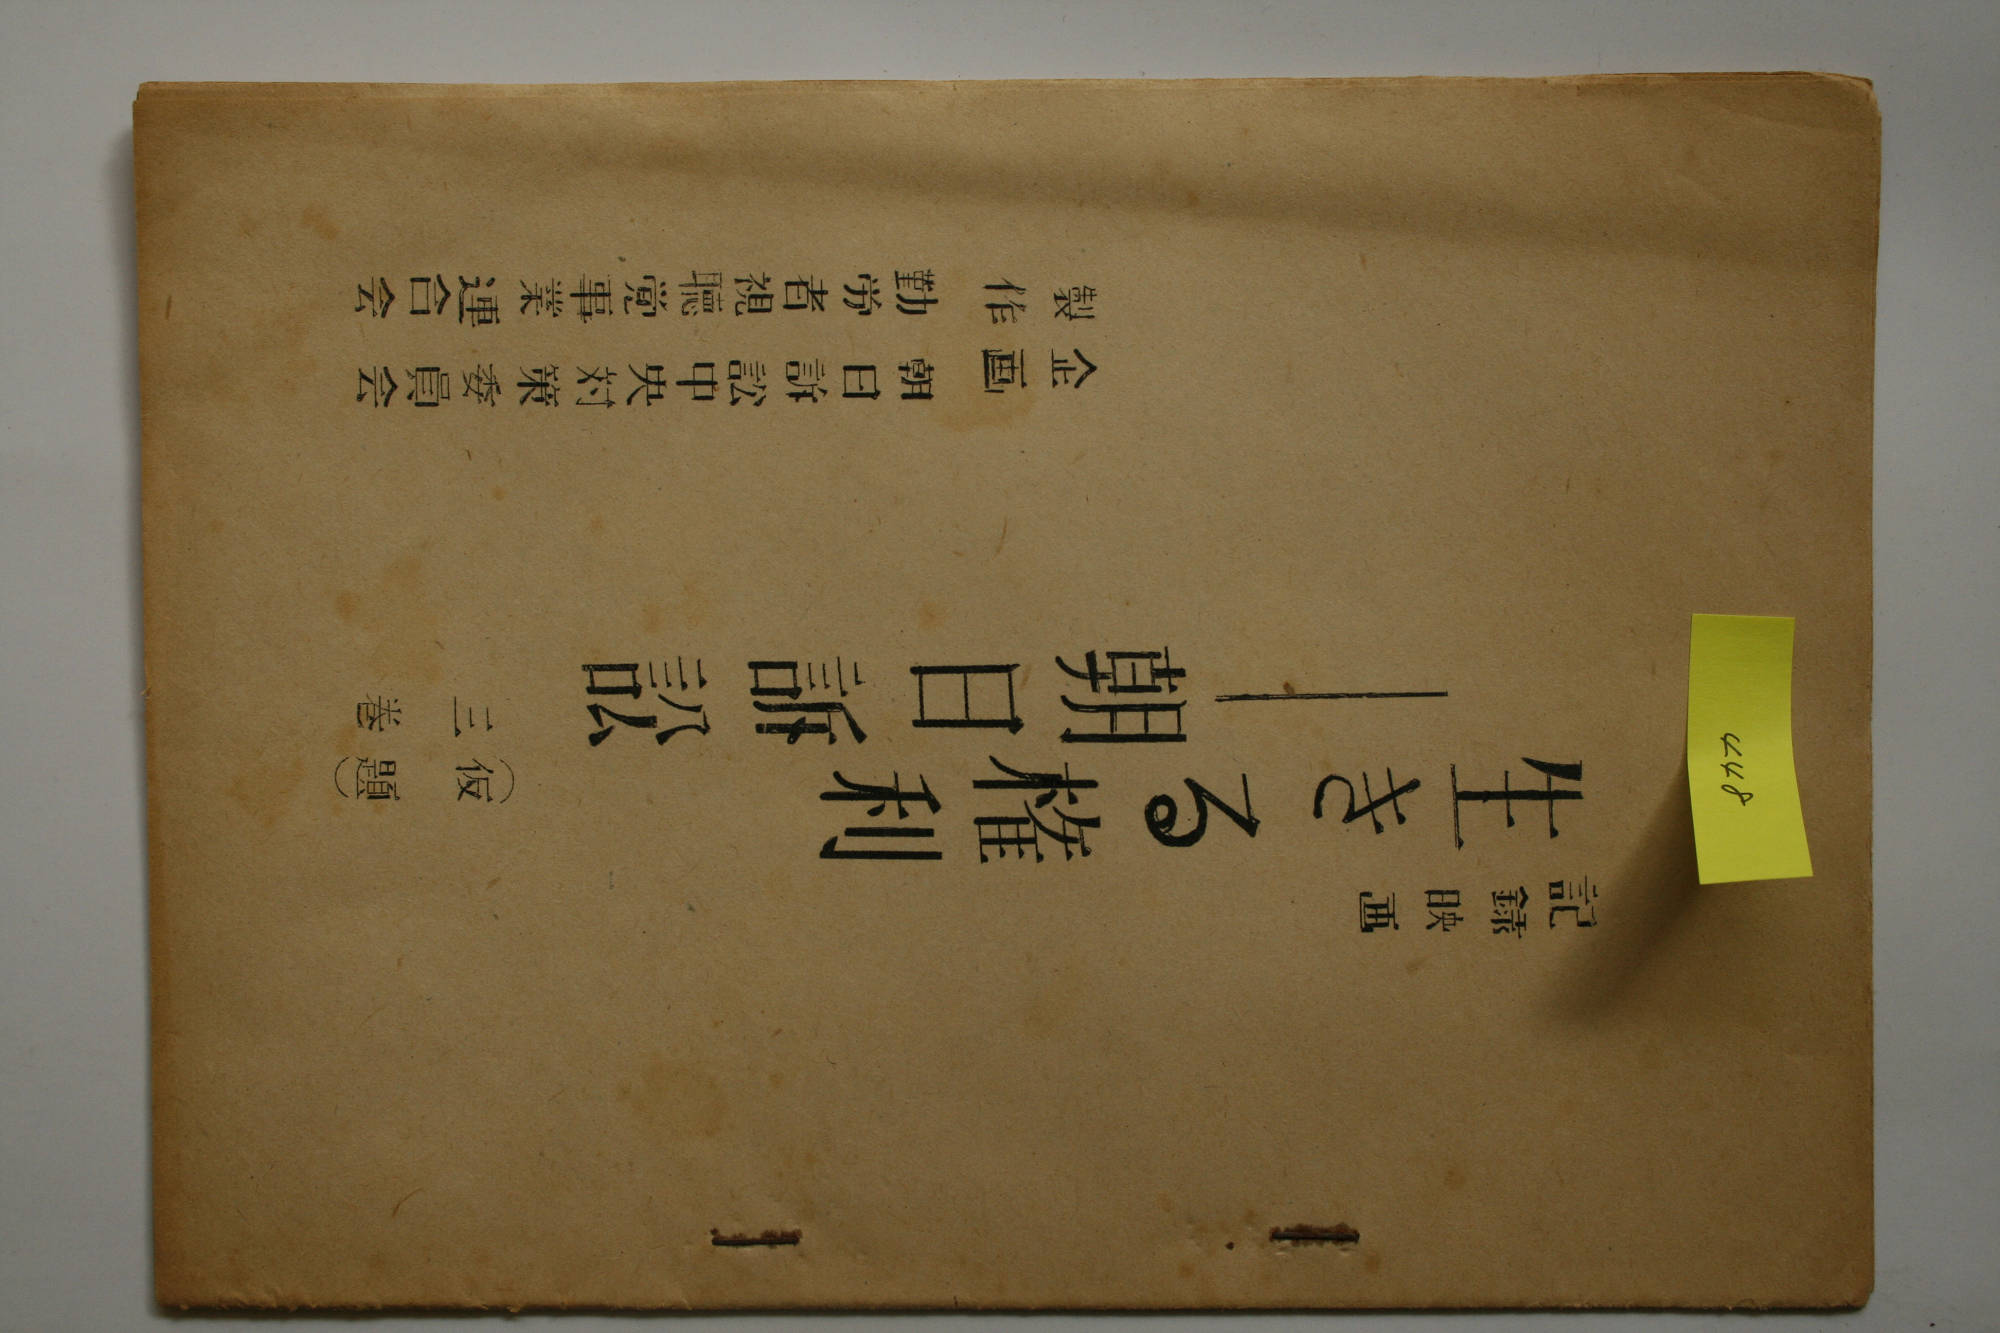 記録映画
生きる権利（仮題）
―朝日訴訟　三巻
企画　朝日訴訟中央対策委員会
製作　勤労者視聴覚事業連合会
448